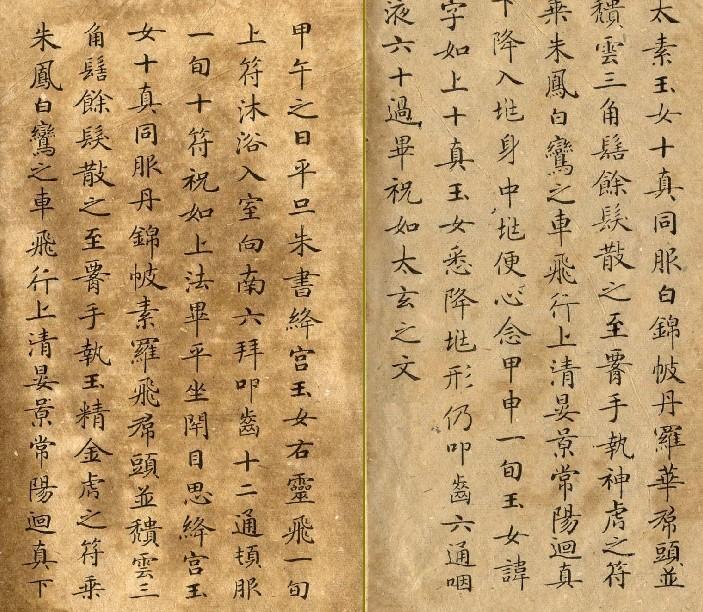 太素玉女十真同服白錦帔丹羅華帬頭並
穨雲三角髻餘髮散之至腰手執神虎之符
乘朱鳳白鸞之車飛行上清晏景常陽迴真
下降入兆身中兆便心念甲申一旬玉女諱
字如上十真玉女悉降兆形仍叩齒六通咽
液六十過畢祝如太玄之文
甲午之日平旦朱書絳宮玉女右靈飛一旬
上符沐浴入室向南六拜叩齒十二通頓服
一旬十符祝如上法畢平坐閉目思絳宮玉
女十真同服丹錦帔素羅飛帬頭並穨雲三
角髻餘髮散之至腰手執玉精金虎之符乘
朱鳳白鸞之車飛行上清晏景常陽迴真下